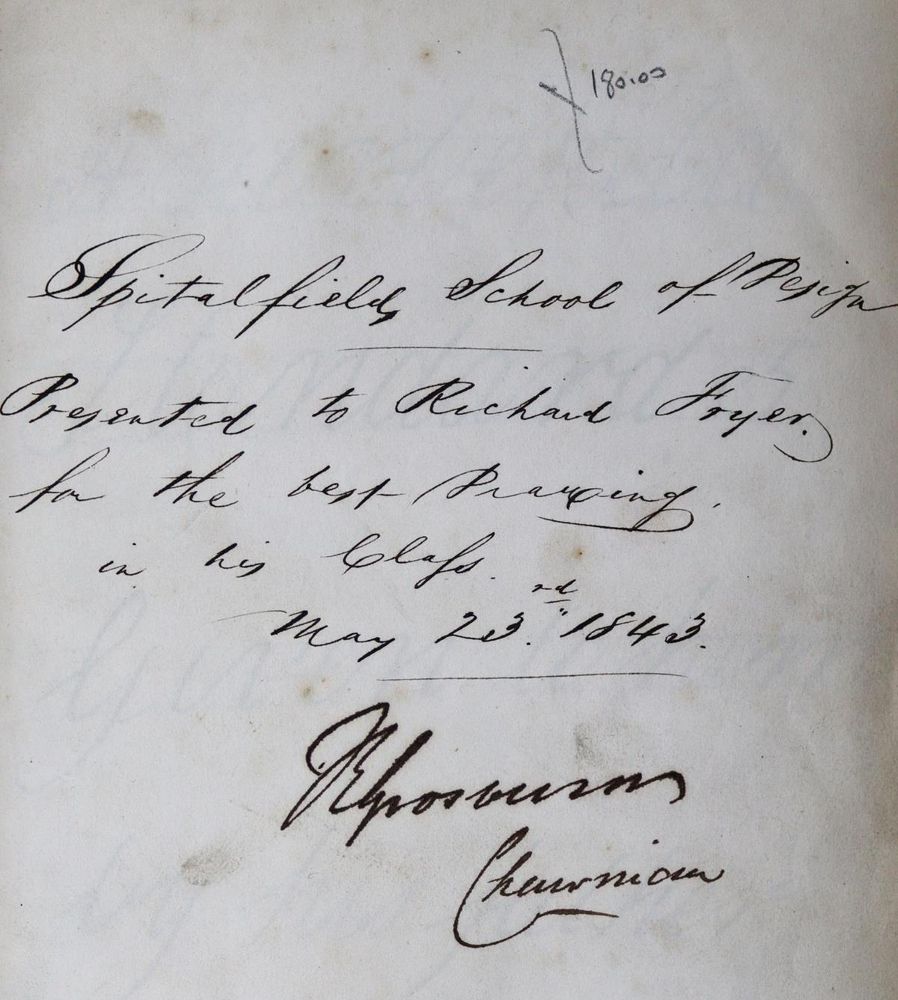 180.00
Spitalfields School of Design
Presented to Richard Fryer.
for the best Drawing.
in his Class.
May 23.rd 1843.
Chairman